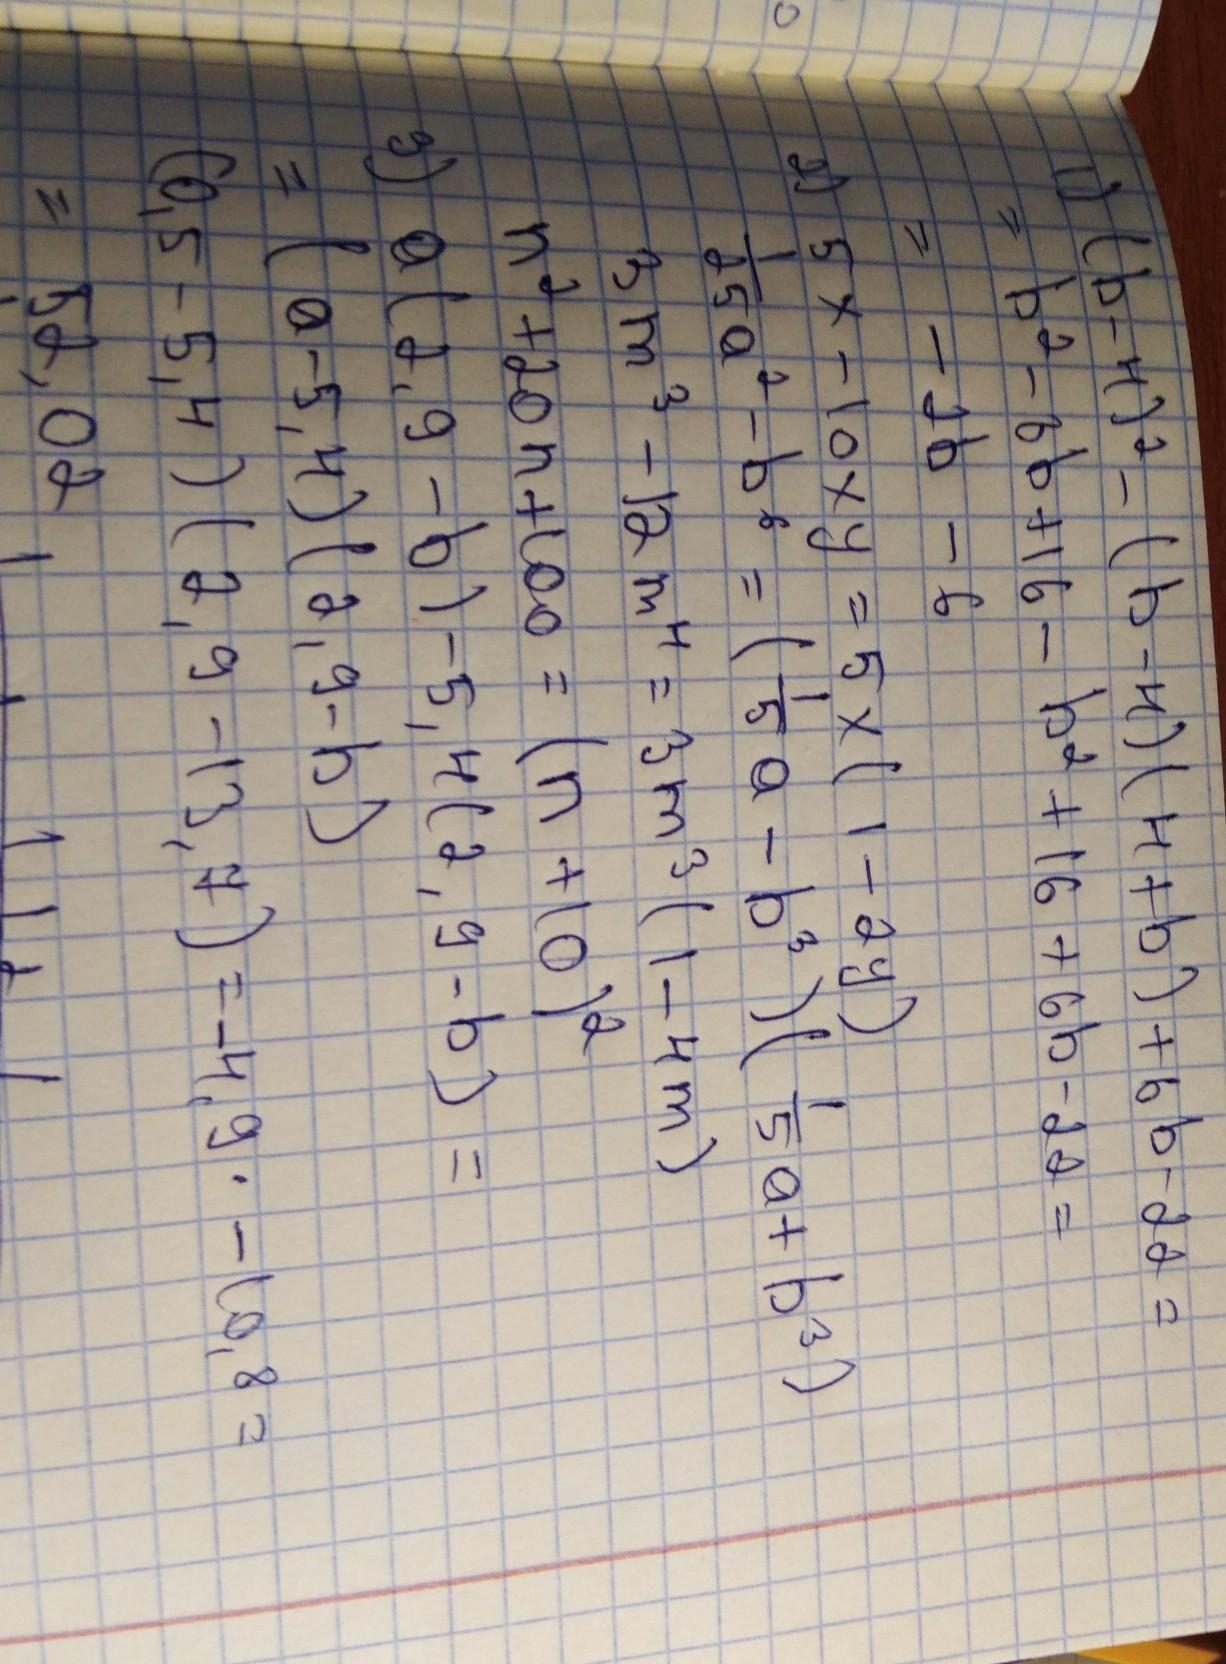 1) (b-4)² - (b-4)(4+b) + 6b - 22 =
= b² - 6b + 16 - b² + 16 + 6b - 22 =
= - 2b - 6
2) 5x - 10xy = 5x(1 - 2y)
1/25 a² - b⁶ = (1/5 a - b³)(1/5 a + b³)
3m³ - 12m⁴ = 3m³(1 - 4m)
n² + 20n + 100 = (n + 10)²
3) a(2,9 - b) - 5,4(2,9 - b) =
= (a - 5,4)(2,9 - b)
(0,5 - 5,4)(2,9 - 13,7) = -4,9 · - 10,8 =
= 52,02